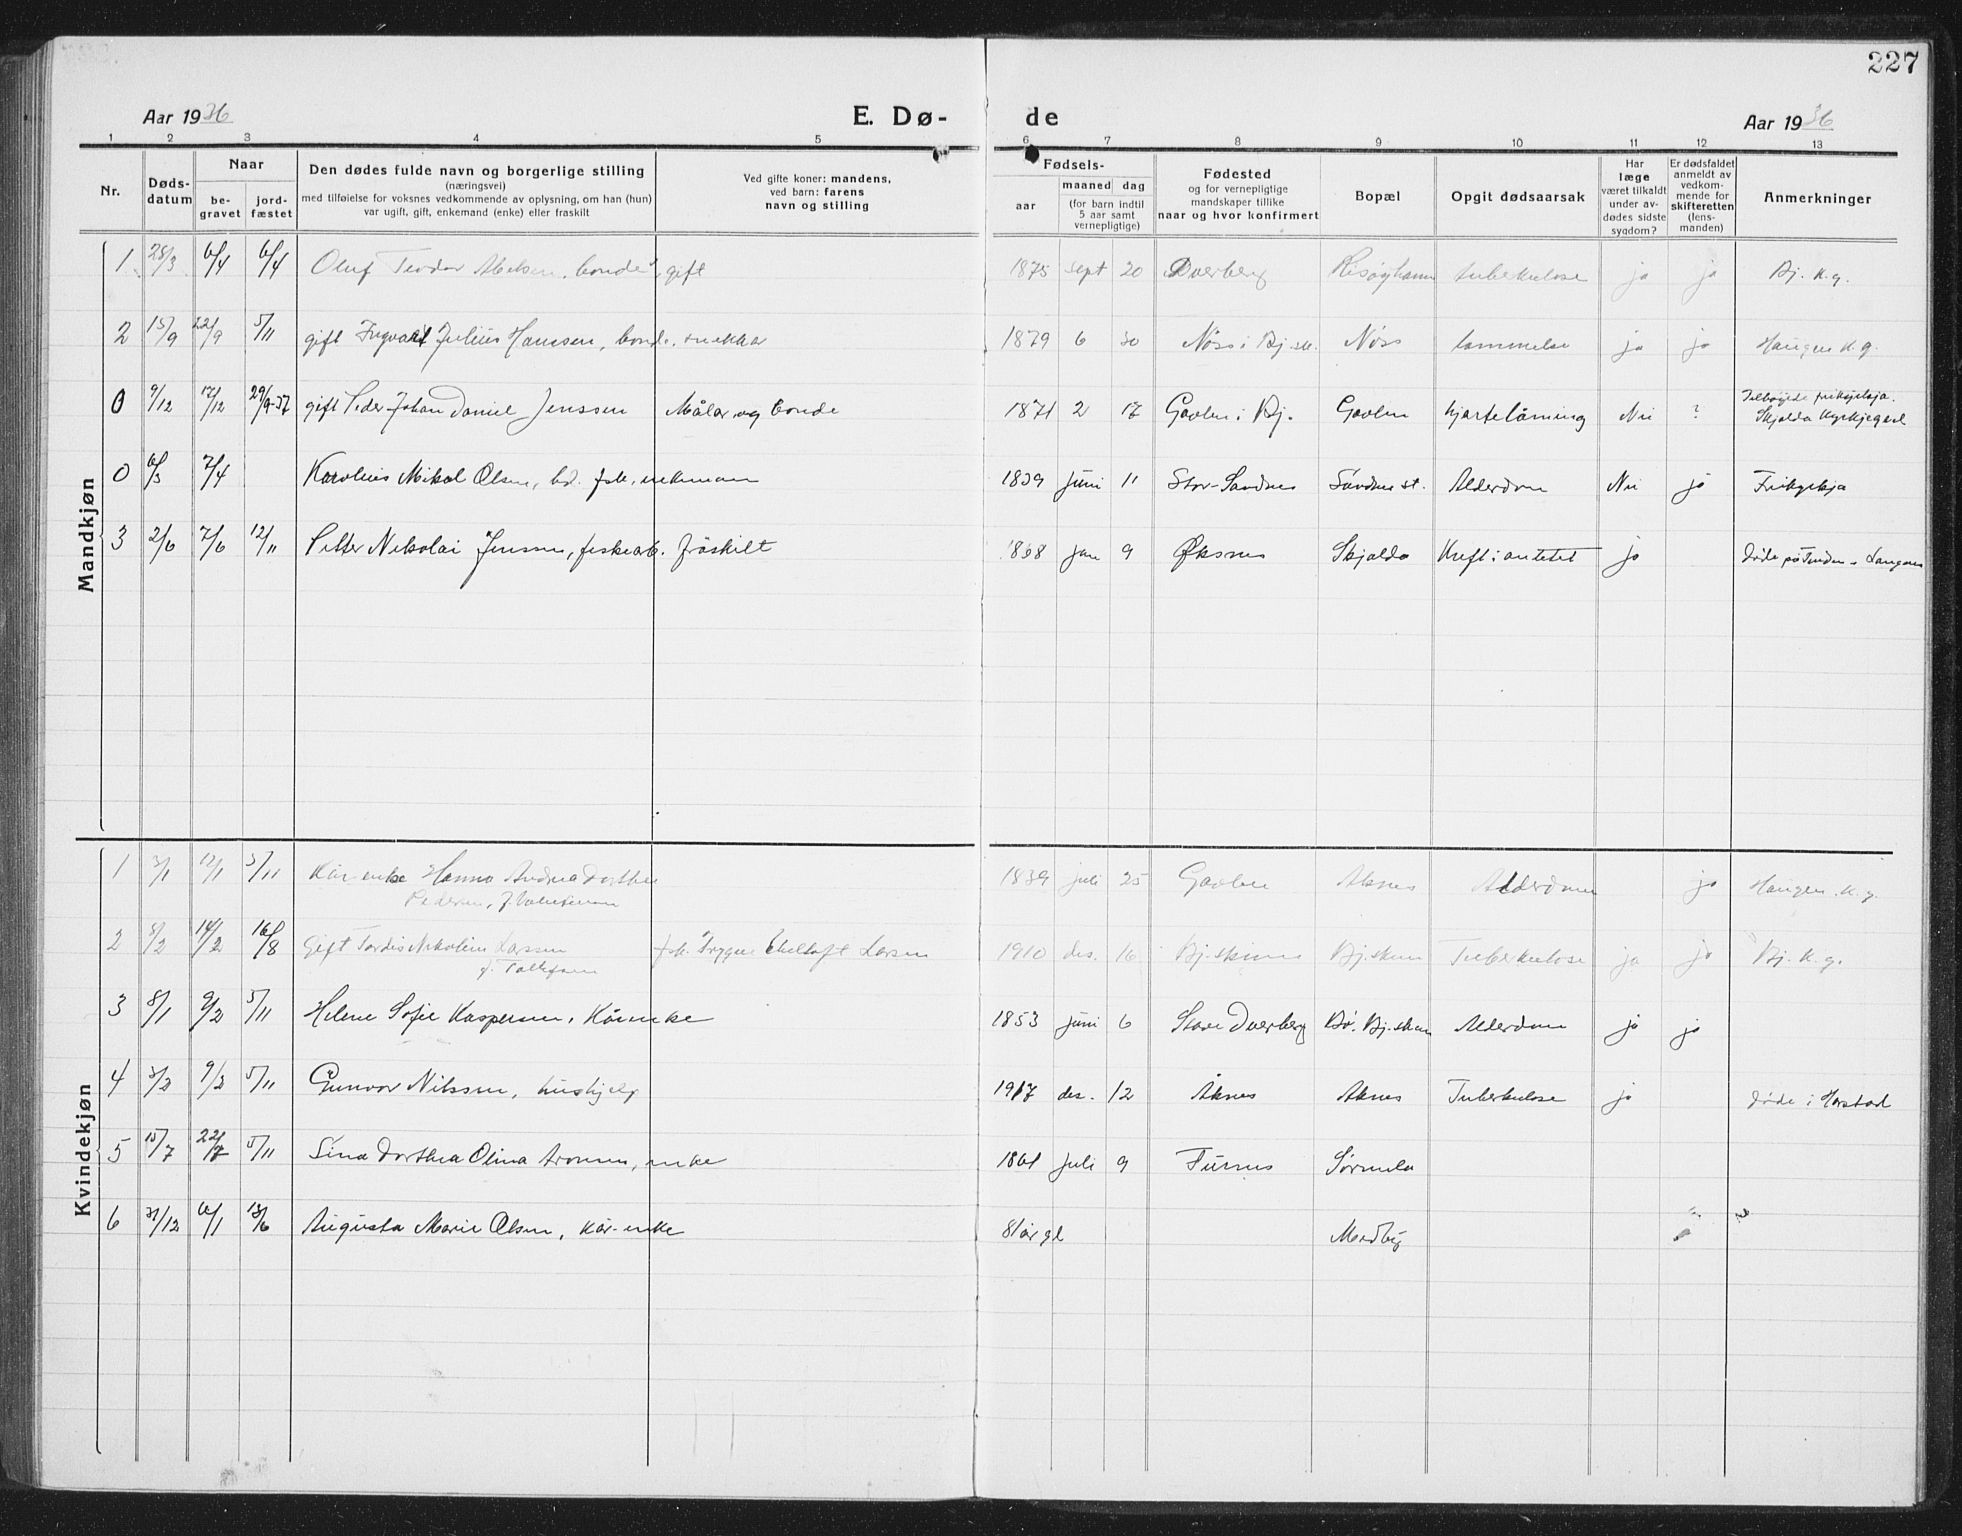 227
Aar 1936 E. Dø- de Aar 1936
1 2 3 4 5 6 7 8 9 10 11 12 13
Nr.
Døds-
datum
Naar
be-
gravet
jord-
fæstet
Den dødes fulde navn og borgerlige stilling
(næringsvei)
med tilføielse for voksnes vedkommende av oplysning, om han (hun)
var ugift, gift, enkemand (enke) eller fraskilt
Ved gifte koner: mandens,
ved barn: farens
navn og stilling
Fødsels-
aar
maaned dag
(for barn indtil
5 aar samt
vernepligtige)
Fødested
og for vernepligtige
mandskaper tillike
naar og hvor konfirmert
Bopæl
Opgit dødsaarsak
Har
læge
været tilkaldt
under av-
dødes sidste
sygdom?
Er dødsfaldet
anmeldt av
vedkom-
mende for
skifteretten
(lens-
manden)
Anmerkninger
Mandkjøn
1 28/3 6/4 6/4 Oluf Teodor Abelsen, bonde, gift 1875 sept 20 Dverberg Risøyhamn tuberkulose ja ja Bj. k.g.
2 15/9 22/9 5/11 gift Ingvart Julius Hansen, bonde, snekkar 1879 6 30 Nöss i Bj.sk. Nöss lammelse ja ja Haugen k.g.
0 9/12 17/12 29/9-37 gift Peder Johan Daniel Jenssen Målar og bonde 1871 2 17 Gavlen i Bj. Gavlen hjartelåming Nei ?
Skjolda kyrkjegard
0 6/3 7/4 Karolius Mikal Olsen, enkemann 1839 juni 11 Stor-Sandnes Sandnes st. Alderdom Nei ja Frikyrkja
3 2/6 7/6 12/11 Petter Nikolai Jenssen, fiskearb. fråskilt 1868 jan 9 Øksnes Skjolda Kreft i ja døde på
Kvindekjøn
1 3/1 12/1 5/11 Kår-enke Hanna Andrea Dorthea
Pedersen, f. 1839 juli 25 Gavlen Åknes Alderdom ja Haugen k.g.
2 5/2 14/2 16/8 Gift Tordis Nikoline Larsen
f. Tollefsen fsk. Trygve Larsen 1910 des. 16 Bj.skinn Bj.skinn Tuberkulose ja ja Bj. k.g.
3 8/1 9/2 5/11 Helene Sofie Kaspersen, Kårenke 1853 juni 6 Stave Dverberg Bø. Bj.skinn Alderdom ja ja
4 3/2 9/2 5/11 Gunvor Nilssen, hushjelp 1917 des. 12 Åknes Åknes Tuberkulose ja døde i Harstad
5 15/7 22/7 5/11 Sina Dorthea Olina Aronsen, enke 1861 juli 9 Sørmela
6 31/12 6/1 13/6 Augusta Marie Olsen, kår-enke 81 år gl Medby